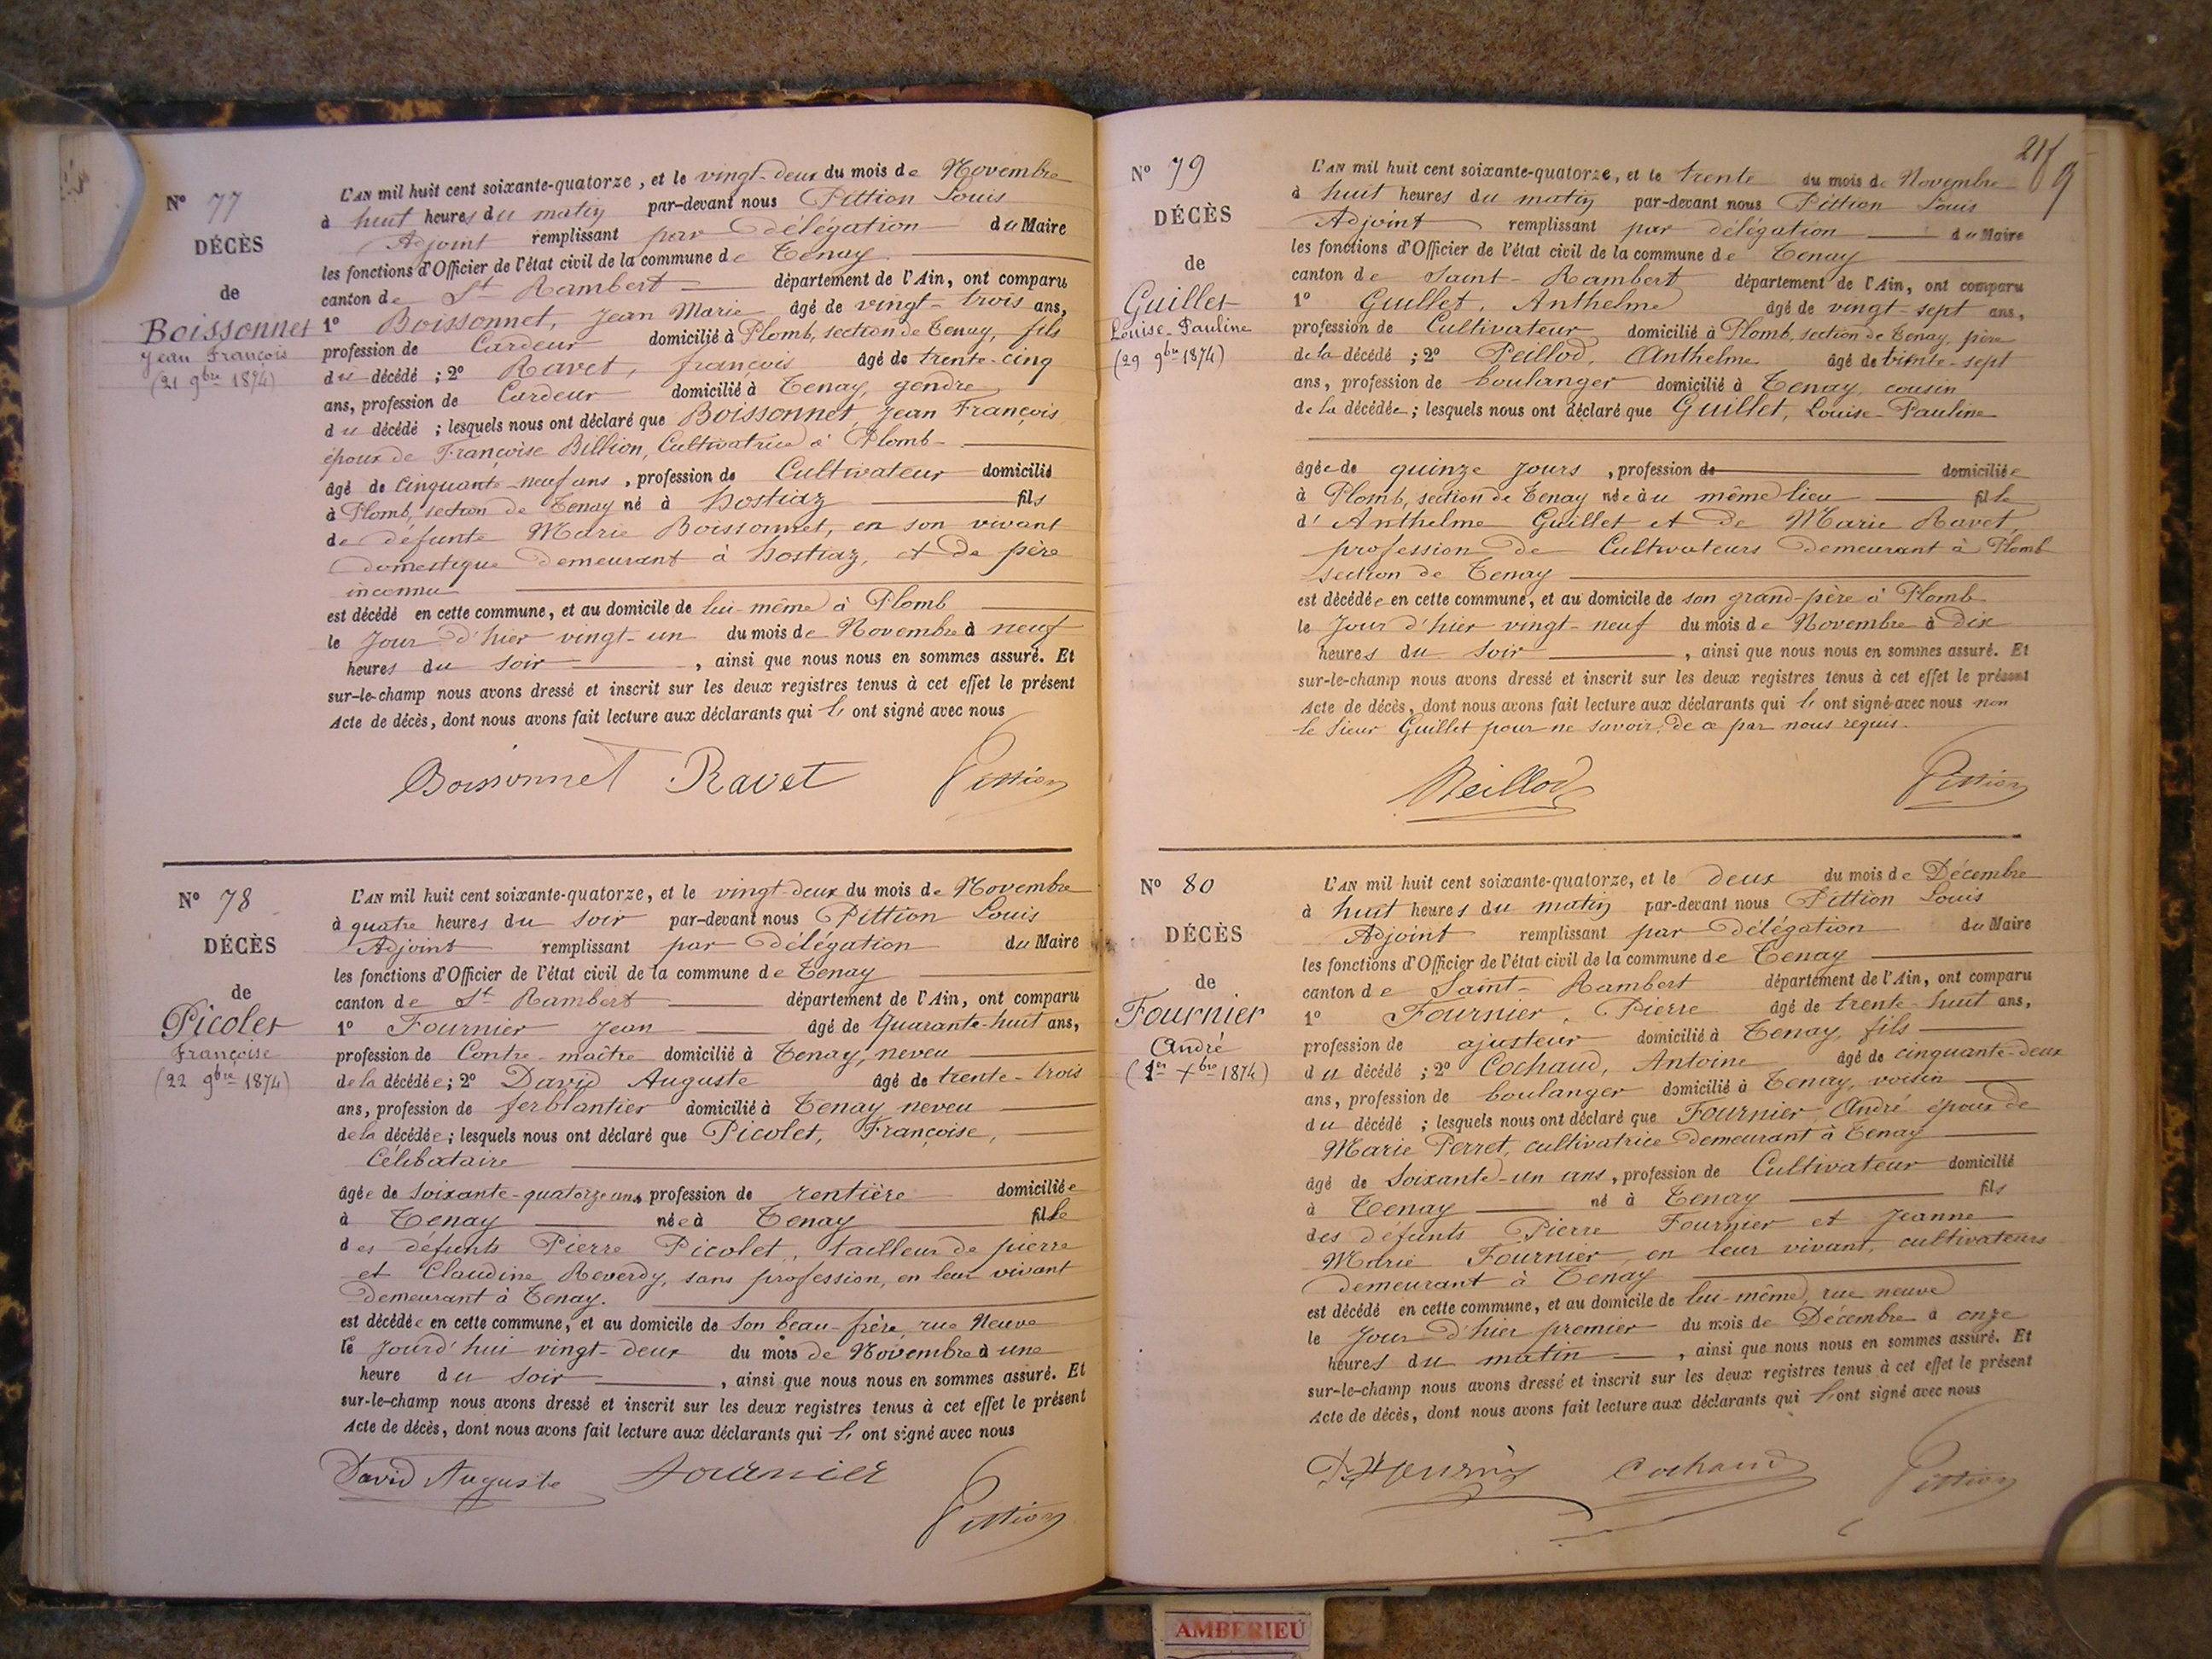 N° 77
DÉCÈS
de
Boissonnet
Jean François
(21 9bre 1874)
L'AN mil huit cent soixante-quatorze, et le vingt-deux du mois de Novembre
à huit heures du matin par-devant nous Pittion Louis
Adjoint remplissant par délégation du Maire
les fonctions d'Officier de l'état civil de la commune de Tenay
canton de St Rambert département de l'Ain, ont comparu
1° Boissonnet, Jean Marie âgé de vingt-trois ans,
profession de Cardeur domicilié à Plomb, section de Tenay, fils
du décédé ; 2° Ravet, françois âgé de trente-cinq
ans, profession de Cardeur domicilié à Tenay, gendre
du décédé ; lesquels nous ont déclaré que Boissonnet, Jean François
époux de Françoise Billion, Cultivatrice à Plomb
âgé de Cinquante-neuf ans, profession de Cultivateur domicilié
à Plomb, section de Tenay né à hostiaz fils
de défunte Marie Boissonnet, en son vivant
domestique demeurant à hostiaz, et de père
inconnu
est décédé en cette commune, et au domicile de lui-même à Plomb
le Jour d'hier vingt-un du mois de Novembre à neuf
heures du soir, ainsi que nous nous en sommes assuré. Et
sur-le-champ nous avons dressé et inscrit sur les deux registres tenus à cet effet le présent
Acte de décès, dont nous avons fait lecture aux déclarants qui l' ont signé avec nous
Boissonnet Ravet Pittion
N° 78
DÉCÈS
de
Picolet
Françoise
(22 9bre 1874)
L'AN mil huit cent soixante-quatorze, et le vingt-deux du mois de Novembre
à quatre heures du soir par-devant nous Pittion Louis
Adjoint remplissant par délégation du Maire
les fonctions d'Officier de l'état civil de la commune de Tenay
canton de St Rambert département de l'Ain, ont comparu
1° Fournier Jean âgé de Quarante-huit ans,
profession de Contre-maître domicilié à Tenay, neveu
de la décédée ; 2° David Auguste âgé de trente-trois
ans, profession de ferblantier domicilié à Tenay neveu
de la décédée ; lesquels nous ont déclaré que Picolet, Françoise,
Célibataire
âgée de soixante-quatorze ans, profession de rentière domiciliée
à Tenay née à Tenay fille
des défunts Pierre Picolet, tailleur de pierre
et Claudine Reverdy, sans profession, en leur vivant
demeurant à Tenay.
est décédée en cette commune, et au domicile de son beau-frère, rue Neuve
le Jourd'hui vingt-deux du mois de Novembre à une
heure du soir, ainsi que nous nous en sommes assuré. Et
sur-le-champ nous avons dressé et inscrit sur les deux registres tenus à cet effet le présent
Acte de décès, dont nous avons fait lecture aux déclarants qui l' ont signé avec nous
David Auguste Fournier
Pittion
N° 79
DÉCÈS
de
Guillet
Louise-Pauline
(29 9bre 1874)
L'AN mil huit cent soixante-quatorze, et le trente du mois de Novembre
à huit heures du matin par-devant nous Pittion Louis
Adjoint remplissant par délégation du Maire
les fonctions d'Officier de l'état civil de la commune de Tenay
canton de Saint-Rambert département de l'Ain, ont comparu
1° Guillet, Anthelme âgé de vingt-sept ans,
profession de Cultivateur domicilié à Plomb, section de Tenay, père
de la décédé ; 2° Peillod, Anthelme âgé de trente-sept
ans, profession de boulanger domicilié à Tenay, cousin
de la décédée ; lesquels nous ont déclaré que Guillet, Louise-Pauline
âgée de quinze jours, profession de domiciliée
à Plomb, section de Tenay née au même lieu fille
d'Anthelme Guillet et de Marie Ravet,
profession de Cultivateurs demeurant à Plomb
section de Tenay
est décédée en cette commune, et au domicile de son grand-père à Plomb
le Jour d'hier vingt-neuf du mois de Novembre à dix
heures du soir, ainsi que nous nous en sommes assuré. Et
sur-le-champ nous avons dressé et inscrit sur les deux registres tenus à cet effet le présent
Acte de décès, dont nous avons fait lecture aux déclarants qui l' ont signé avec nous non
le sieur Guillet pour ne savoir, de ce par nous requis.
Peillod Pittion
N° 80
DÉCÈS
de
Fournier
André
(1er Xbre 1874)
L'AN mil huit cent soixante-quatorze, et le deux du mois de Décembre
à huit heures du matin par-devant nous Pittion Louis
Adjoint remplissant par délégation du Maire
les fonctions d'Officier de l'état civil de la commune de Tenay
canton de Saint-Rambert département de l'Ain, ont comparu
1° Fournier, Pierre âgé de trente-huit ans,
profession de ajusteur domicilié à Tenay, fils
du décédé ; 2° Cochaud, Antoine âgé de cinquante-deux
ans, profession de boulanger domicilié à Tenay, voisin
du décédé ; lesquels nous ont déclaré que Fournier André époux de
Marie Perret, cultivatrice demeurant à Tenay
âgé de Soixante-un ans, profession de Cultivateur domicilié
à Tenay né à Tenay fils
des défunts Pierre Fournier et Jeanne
Marie Fournier, en leur vivant, cultivateurs
demeurant à Tenay
est décédé en cette commune, et au domicile de lui-même, rue neuve
le Jour d'hier premier du mois de Décembre à onze
heures du matin, ainsi que nous nous en sommes assuré. Et
sur-le-champ nous avons dressé et inscrit sur les deux registres tenus à cet effet le présent
Acte de décès, dont nous avons fait lecture aux déclarants qui l'ont signé avec nous
Cochaud Pittion
AMBERIEU